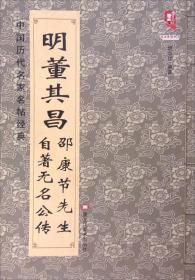 中国历代名家名帖经典
明董其昌
邵康节先生
自著无名公传